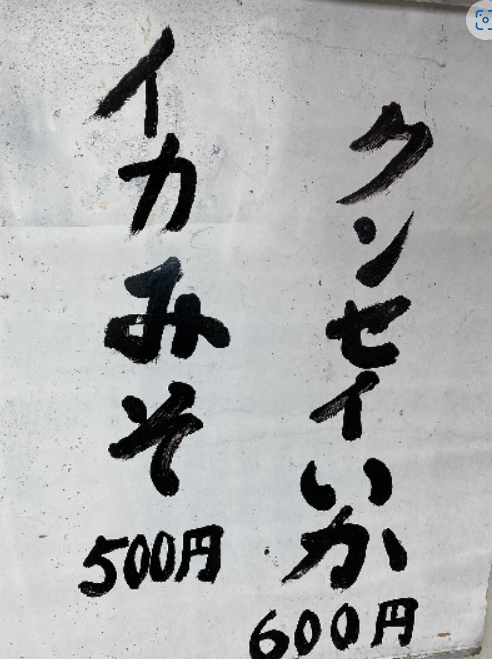 クンセイいか
600円
イカみそ
500円